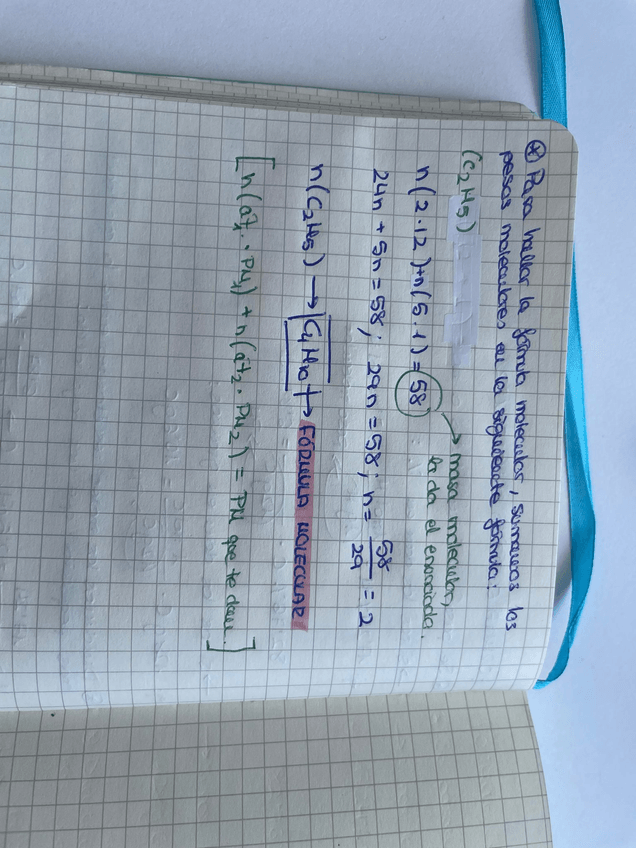 * Para hallar la fórmula molecular, sumamos los
pesos moleculares en la siguiente fórmula:
(C₂H₅)
n(2·12)+n(5·1)=58 → masa molecular,
la da el enunciado.
24n + 5n = 58; 29n = 58; n = 58/29 = 2
n(C₂H₅) → C₄H₁₀ → FÓRMULA MOLECULAR
[n(át₁·PM₁) + n(át₂·PM₂) = PM que te dan.]